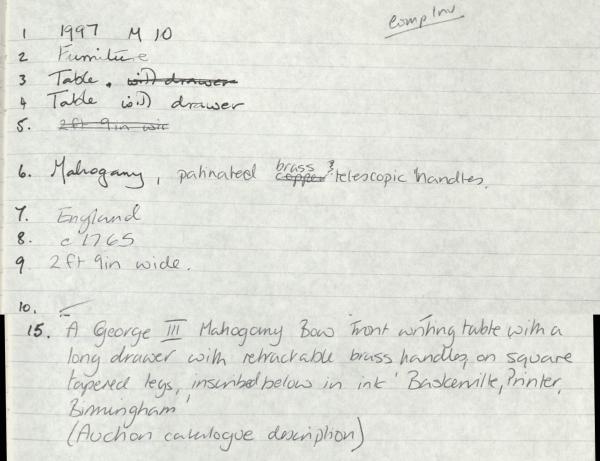 Comp Inv
1 1997 M 10
2 Furniture
3 Table. with drawer
4 Table with drawer
5. 2ft 9in wide
6. Mahogany, patinated copper brass & telescopic handles.
7. England
8. c 1765
9 2ft 9in wide.
10. –
15. A George III Mahogany Bow Front writing table with a
long drawer with retractable brass handles, on square
tapered legs, inscribed below in ink 'Baskerville, Printer,
Birmingham'
(Auction catalogue description)